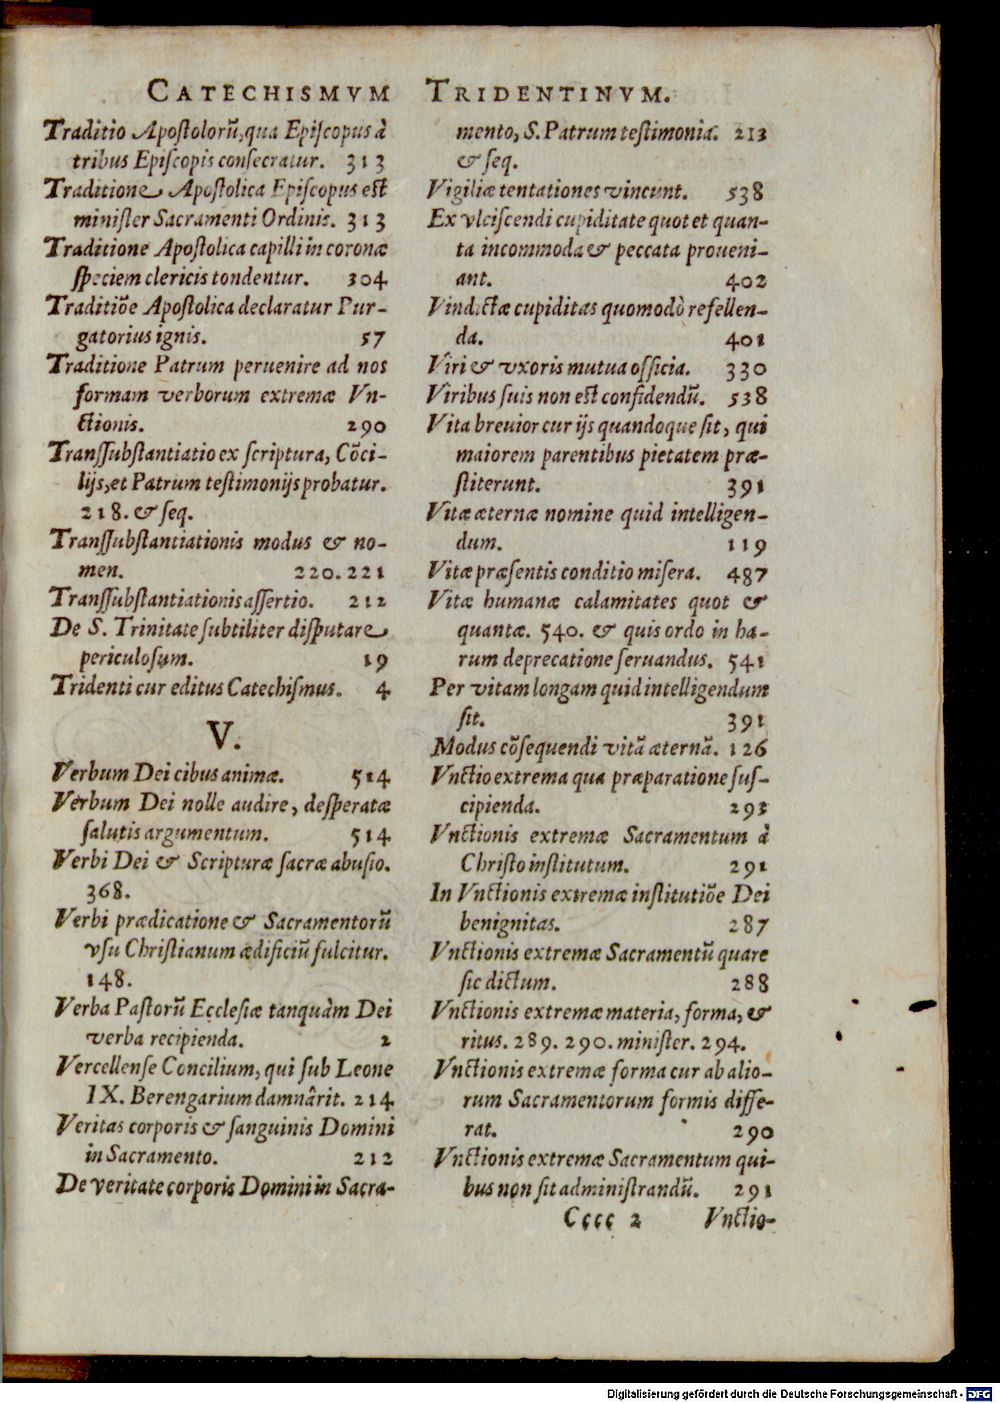 CATECHISMVM TRIDENTINVM.
Traditio Apoſtolorũ, qua Epiſcopus à
tribus Epiſcopis conſecratur. 313
Traditione Apoſtolica Epiſcopus eſt
miniſter Sacramenti Ordinis. 313
Traditione Apoſtolica capilli in coronæ
ſpeciem clericis tondentur. 304
Traditiõe Apoſtolica declaratur Pur-
gatorius ignis. 57
Traditione Patrum peruenire ad nos
formam verborum extremæ Vn-
ctionis. 290
Tranſſubſtantiatio ex ſcriptura, Cõci-
lijs, et Patrum teſtimonijs probatur.
218. & ſeq.
Tranſſubſtantiationis modus & no-
men. 220. 221
Tranſſubſtantiationis aſſertio. 212
De S. Trinitate ſubtiliter diſputare
periculoſum. 19
Tridenti cur editus Catechiſmus. 4
V.
Verbum Dei cibus animæ. 514
Verbum Dei nolle audire, deſperatæ
ſalutis argumentum. 514
Verbi Dei & Scripturæ ſacræ abuſio.
368.
Verbi prædicatione & Sacramentorũ
vſu Chriſtianum ædificiũ fulcitur.
148.
Verba Paſtorũ Eccleſiæ tanquàm Dei
verba recipienda. 2
Vercellenſe Concilium, qui ſub Leone
IX. Berengarium damnârit. 214
Veritas corporis & ſanguinis Domini
in Sacramento. 212
De veritate corporis Domini in Sacra-
mento, S. Patrum teſtimonia. 213
& ſeq.
Vigiliæ tentationes vincunt. 538
Ex vlciſcendi cupiditate quot et quan-
ta incommoda & peccata proueni-
ant. 402
Vindictæ cupiditas quomodò refellen-
da. 401
Viri & vxoris mutua officia. 330
Viribus ſuis non eſt confidendũ. 538
Vita breuior cur ijs quandoque ſit, qui
maiorem parentibus pietatem præ-
ſtiterunt. 391
Vitæ æternæ nomine quid intelligen-
dum. 119
Vitæ præſentis conditio miſera. 487
Vitæ humanæ calamitates quot &
quantæ. 540. & quis ordo in ha-
rum deprecatione ſeruandus. 541
Per vitam longam quid intelligendum
ſit. 391
Modus cõſequendi vitã æternã. 126
Vnctio extrema qua præparatione ſuſ-
cipienda. 293
Vnctionis extremæ Sacramentum à
Chriſto inſtitutum. 291
In Vnctionis extremæ inſtitutiõe Dei
benignitas. 287
Vnctionis extremæ Sacramentũ quare
ſic dictum. 288
Vnctionis extremæ materia, forma, &
ritus. 289. 290. miniſter. 294.
Vnctionis extremæ forma cur ab alio-
rum Sacramentorum formis diffe-
rat. 290
Vnctionis extremæ Sacramentum qui-
bus non ſit adminiſtrandũ. 291
Cccc 2 Vnctio-
Digitalisierung gefördert durch die Deutsche Forschungsgemeinschaft - DFG